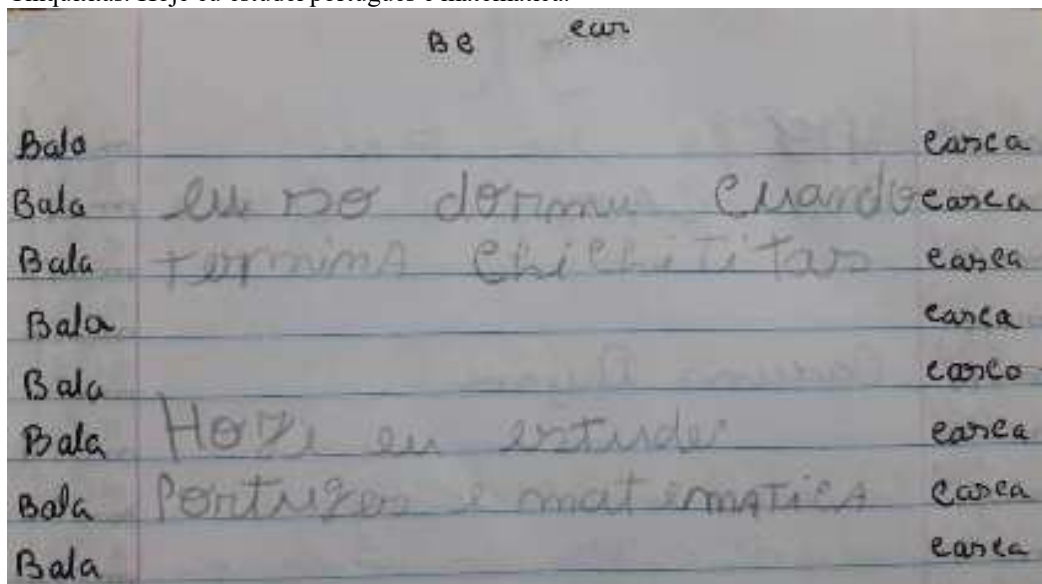 Be car
Bala casca
Bala eu so dormu Cuando casca
Bala termina Chichititas casca
Bala casca
Bala casco
Bala Hoze eu estudei casca
Bala Portuges e matematica casca
Bala casca